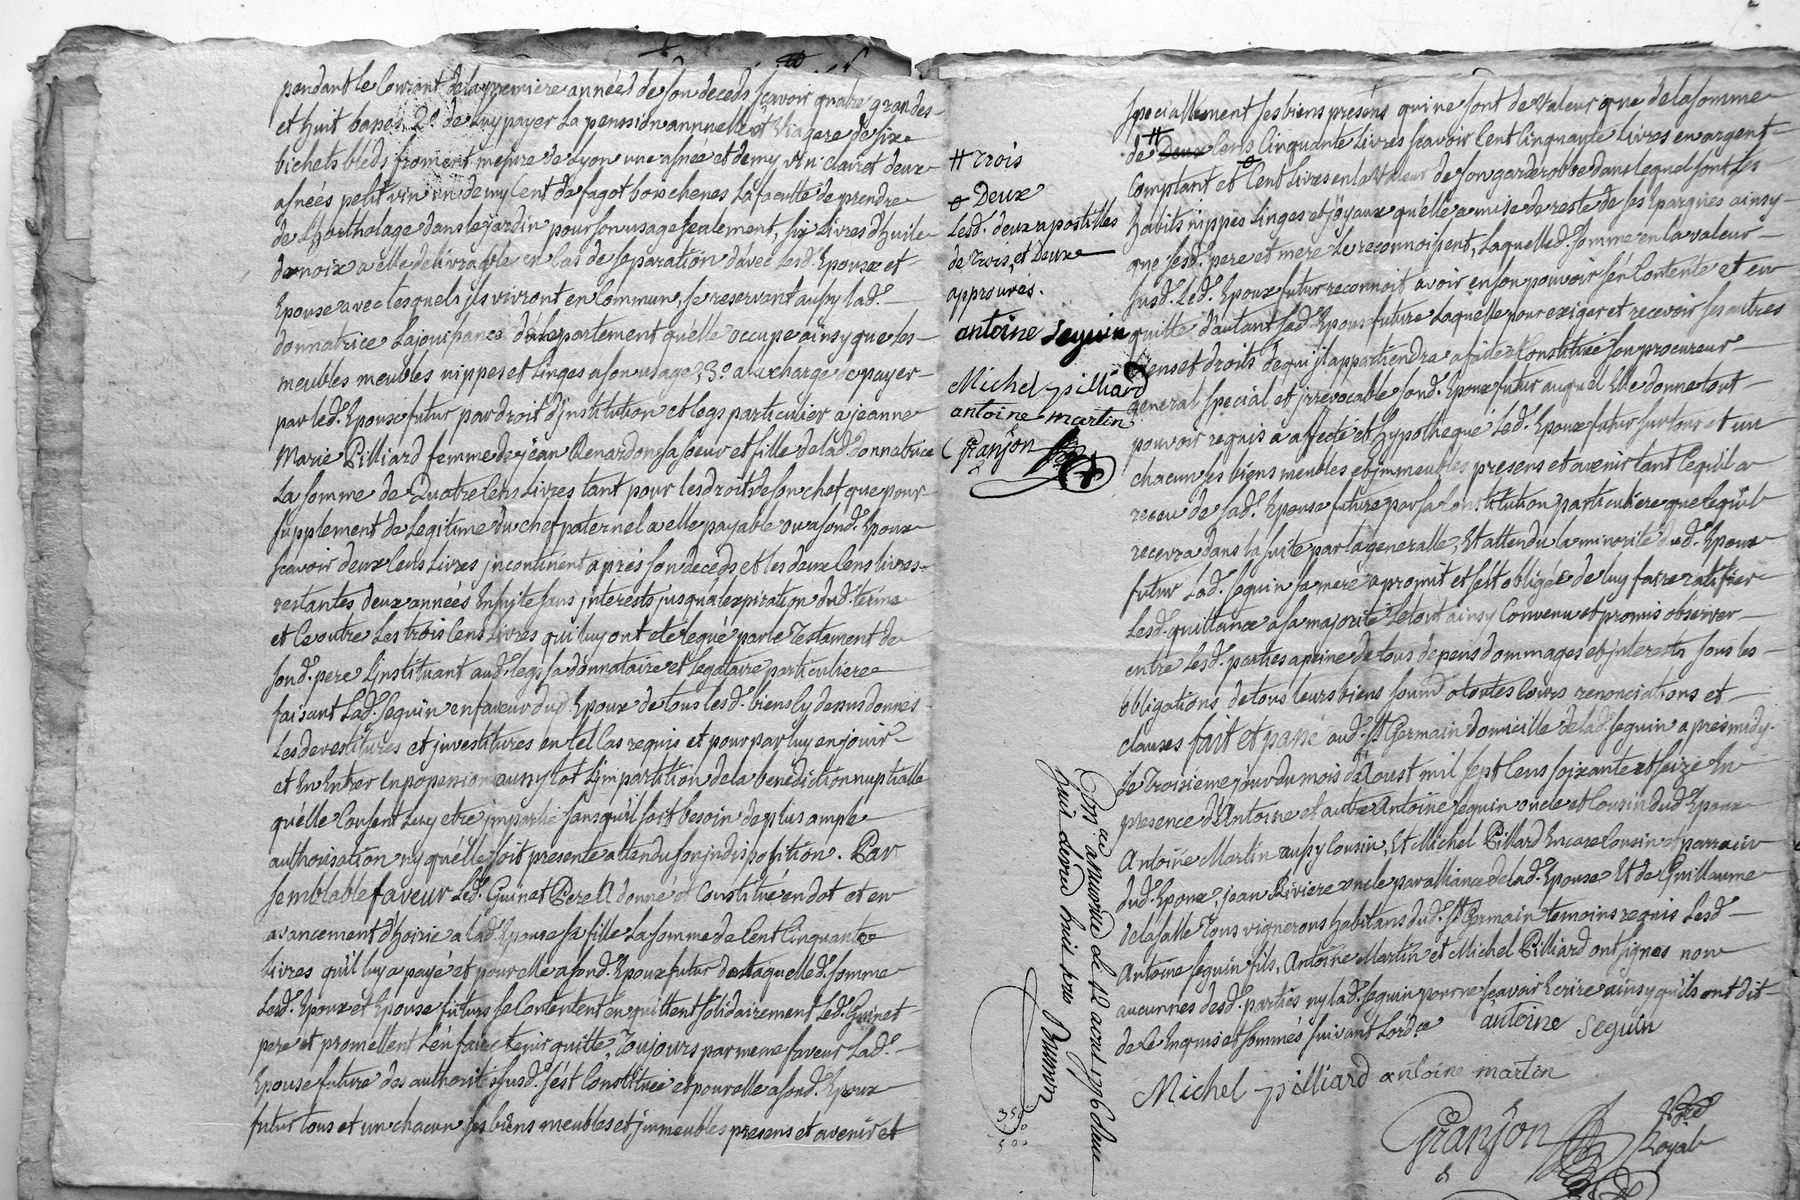 pendant le Courant de la premiere année de son deceds scavoir quatre grandes
et huit bases 2.° de luy payer la penssion annuelle et Viagere de six
bichets bleds froment mesure de Lyon une asnée et demy vin clairet deux
asnées petit vin un demy Cent de fagot bois chenes La faculté de prendre
de L'hortholage dans le jardin pour son usage seulement, six Livres d'huile
de noix a elle delivrable en Cas de separation d'avec Lesd. Epoux et
Epouse avec lesquels ils vivront en Commun, se reservant aussy lad.
donnatrice La jouissance de l'apartement qu'elle occupe ainsy que les
meubles meubles nippes et Linges a son usage, 3.° a la charge de payer
par led. Epoux futur par droit d'institution et legs particulier a jeanne
Marie Pilliard femme de jean Renardon sa soeur et fille de lad. Donnatrice
La somme de Quatre Cens Livres tant pour les droits de son chef que pour
supplement de Legitime du chef paternel a elle payable ou a sond. Epoux
scavoir deux Cens Livres incontinent aprés son deceds et les deux Cens livres
restantes deux années Ensuite sans interests jusqu'a l'expiration dud. terme
et Ce outre Les trois Cens Livres qui luy ont eté legué par le Testament de
sond. pere L'instituant aud. legs sa donnataire et legataire particuliere
faisant Lad. Seguin en faveur dud. Epoux de tous lesd. biens Cy dessus donnés
Les devestitures et investitures en tel Cas requis et pour par luy en jouir
et En Entrer En possession aussytot L'impartition de la benediction nuptialle
qu'elle Consent Luy etre impartie sans qu'il soit besoin de plus ample
authorisation ny qu'elle soit presente attendu son indisposition. Par
semblable faveur Led. Guinet Pere A donné et Constitué en dot et en
avancement d'hoirie a lad. Epouse sa fille La somme de Cent Cinquante
Livres qu'il luy a payé et pour elle a sond. Epoux futur de Laquelle d. somme
Lesd. Epoux et Epouse futurs se Contentent en quittent solidairement Led. Guinet
pere et promettent L'en faire tenir quitte, Toujours par meme faveur Lad.
Epouse future des authorités susd. s'est Constituée et pour elle a sond. Epoux
futur tous et un chacun ses biens meubles et immeubles presens et avenir et
# trois
Deux
Lesd. deux apostilles
de trois, et Deux
approuvés.
antoine seguin
Michel pilliard
antoine martin
Granjon
speciallement ses biens presens qui ne sont de Valeur que de la somme
de # Deux Cens Cinquante Livres scavoir Cent Cinquante Livres en argent
Comptant et Cent Livres en la Valeur de son garderobbe dans lequel sont Les
habits nippes Linges et joyaux qu'elle a mise de reste de ses Epargnes ainsy
que sesd. pere et mere Le reconnoissent, Laquelle d. somme en la valeur
susd. Led. Epoux futur reconnoit avoir en son pouvoir s'en Contente et en
quitte d'autant Lad. Epouse future Laquelle pour exiger et recevoir ses autres
biens et droits de qui il appartiendra a fait et Constitué son procureur
general special et irrevocable sond. Epoux futur auquel Elle donne tout
pouvoir requis a affecté et hypothequé Led. Epoux futur sur tous et un
chacun ses biens meubles et immeubles presens et avenir tant Ce qu'il a
receu de sad. Epouse future par sa Constitution particuliere que Ce qu'il
recevra dans la suite par la generalle, Et attendu la minorité dud. Epoux
futur Lad. Seguin sa mere a promit et s'est obligée de luy faire ratiffier
Lesd. quittance a sa majorité Le tout ainsy Convenu et promis observer
entre Lesd. parties a peine de tous depens dommages et interests sous les
obligations de tous leurs biens soumd. a toutes Cours renonciations et
clauses fait et passé aud. St Germain domicille de lad. Seguin apres midy.
Le Troisieme jour du mois d'Aoust mil sept Cens soixante et seize En
presence d'Antoine et autre Antoine Seguin oncle et Cousin dud. Epoux
Antoine Martin aussy Cousin, Et Michel Pilliard Encore Cousin et parrain
dud. Epoux, jean Riviere oncle par alliance de lad. Epouse Et de Guillaume
delasalle Tous vignerons habitans dud. St Germain temoins requis Lesd.
Antoine Seguin fils, Antoine Martin et Michel Pilliard ont signés non
aucunnes desd. parties ny lad. Seguin pour ne scavoir Ecrire ainsy qu'ils ont dit
de Ce Enquis et sommés suivant L'ord.ce antoine seguin
Michel pilliard antoine martin
Granjon
Royal
le 12 aout 1776
350
500